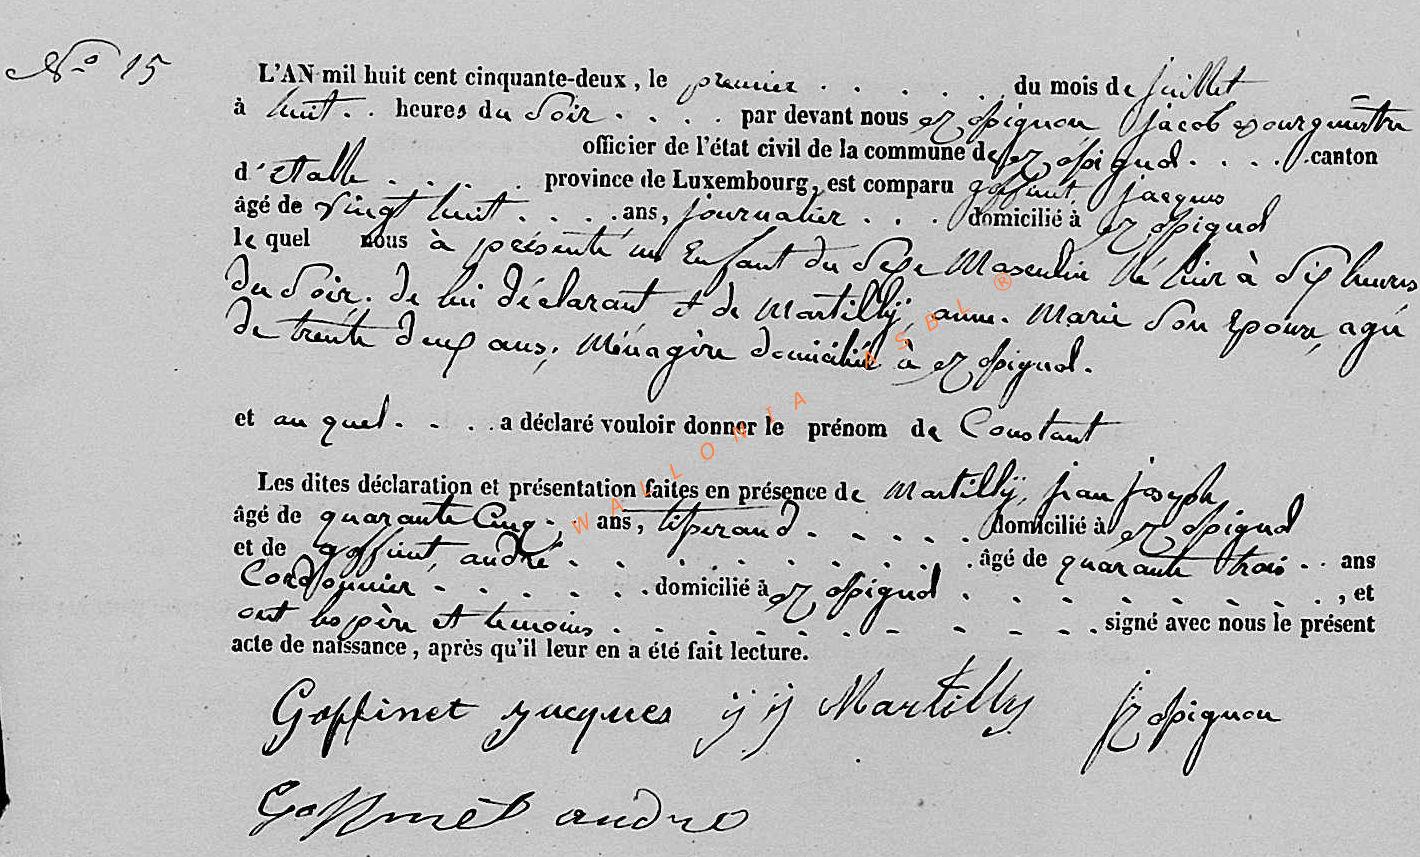 N.o 15
L'AN mil huit cent cinquante-deux, le premier . . . . . . du mois de juillet
à huit . . heures du Soir . . . . par devant nous jacob Bourgmestre
officier de l'état civil de la commune de . . . . canton
d'Etalle . . . . . province de Luxembourg, est comparu goffinet, jacques
âgé de vingt huit . . . . ans, journalier . . . domicilié à
le quel nous à présenté un Enfant du Sexe Masculin Né hier à Six heures
du Soir. de lui déclarant et de Martilly, anne. Marie Son Epouse, agée
de trente deux ans, Ménagère domiciliée à
et au quel . . . . a déclaré vouloir donner le prénom de Constant
Les dites déclaration et présentation faites en présence de Martilly, jean joseph
âgé de quarante Cinq . . ans, tisserand . . . . . domicilié à
et de goffinet, andré . . . . . . . . . . . âgé de quarante trois . . ans
Cordonnier . . . . . . . domicilié à . . . . . . . . . , et
ont les père et temoins . . . . . . . . . . . . signé avec nous le présent
acte de naissance, après qu'il leur en a été fait lecture.
Goffinet jacques j j Martilly
Goffinet andre
WALLONIA ASBL ®